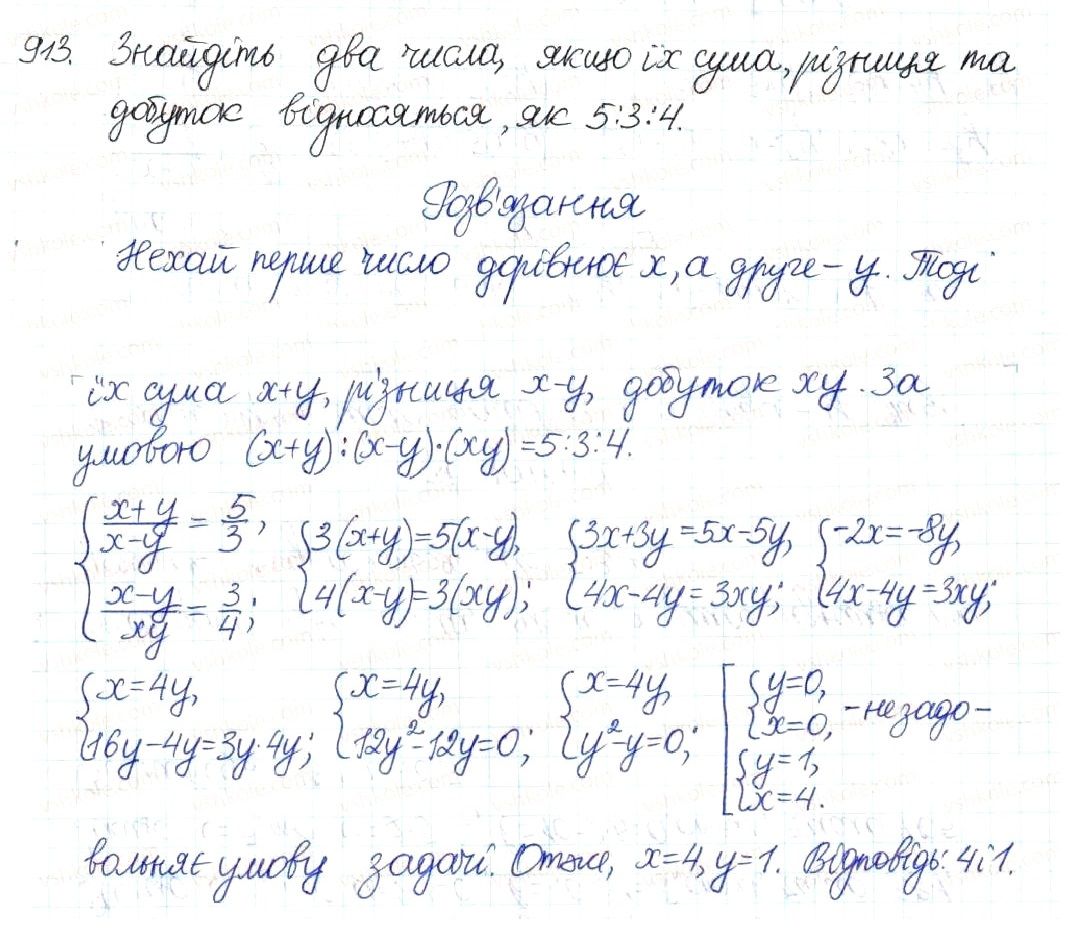 913. Знайдіть два числа, якщо їх сума, різниця та
добуток відносяться, як 5:3:4.
Розв'язання
Нехай перше число дорівнює x, а друге – y. Тоді
їх сума x+y, різниця x-y, добуток xy. За
умовою (x+y):(x-y)·(xy)=5:3:4.
{ (x+y)/(x-y) = 5/3, (x-y)/xy = 3/4; { 3(x+y)=5(x-y), 4(x-y)=3(xy); { 3x+3y=5x-5y, 4x-4y=3xy; { -2x=-8y, 4x-4y=3xy;
{ x=4y, 16y-4y=3y·4y; { x=4y, 12y²-12y=0; { x=4y, y²-y=0; [ { y=0, x=0, -незадо- { y=1, x=4.
вольняє умову задачі. Отже, x=4, y=1. Відповідь: 4 і 1.